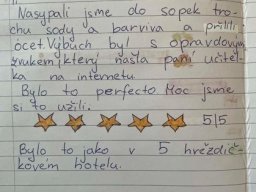 Nasypali jsme do sopek tro-
chu sody a barviva a přilili
ocet. Výbuch byl s opravdovým
zvukem, který našla paní učitel-
ka na internetu.
Bylo to perfecto. Moc jsme
si to užili.
5/5
Bylo to jako v 5 hvězdič-
kovém hotelu.